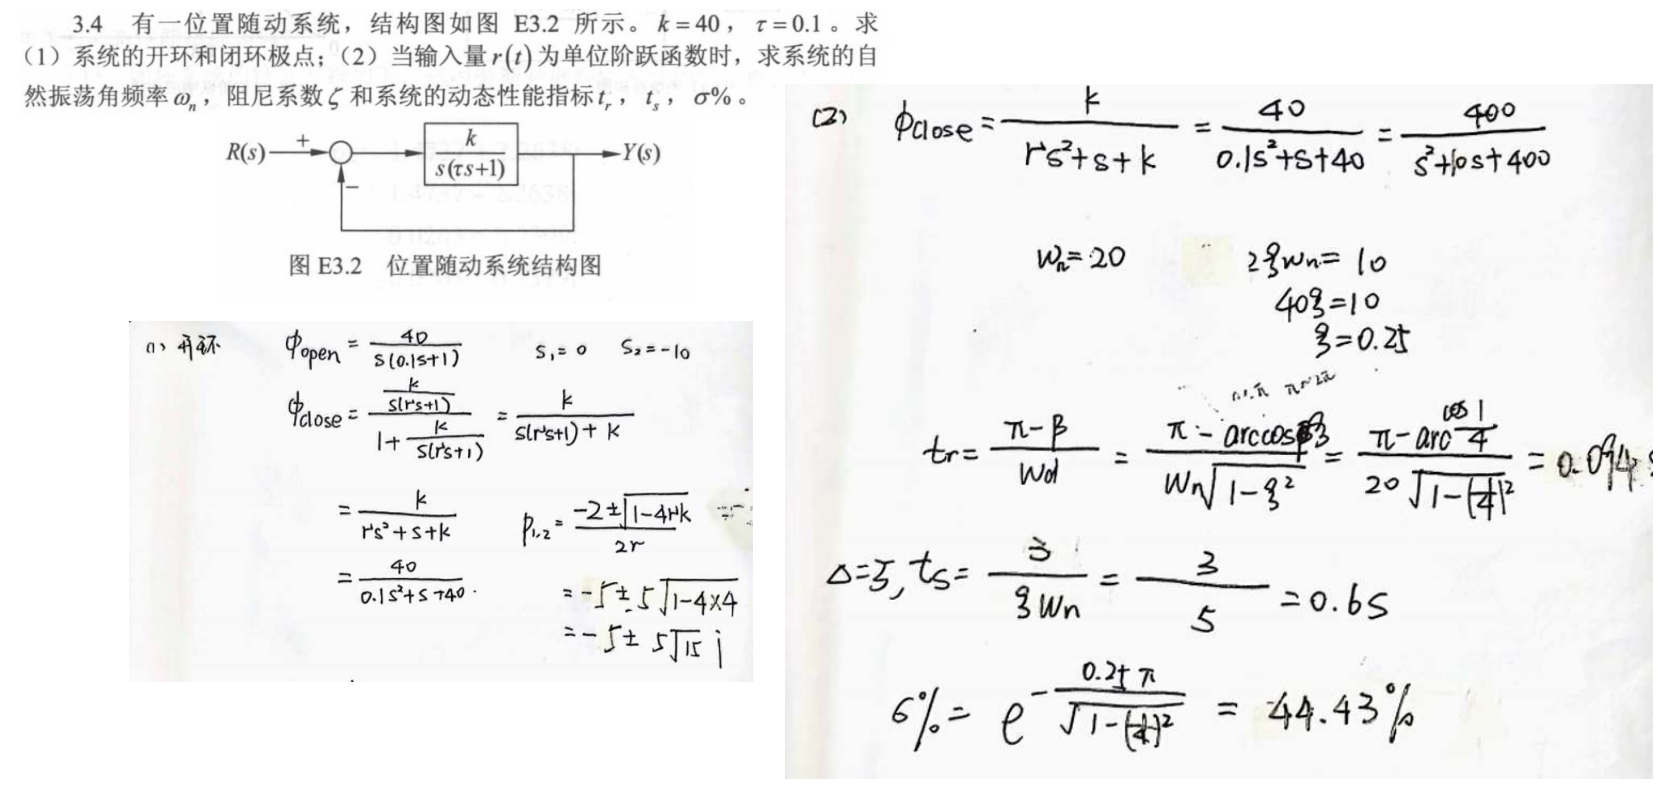 3.4 有一位置随动系统，结构图如图 E3.2 所示。k=40，τ=0.1。求
（1）系统的开环和闭环极点；（2）当输入量r(t)为单位阶跃函数时，求系统的自
然振荡角频率ωₙ，阻尼系数ζ和系统的动态性能指标tᵣ，tₛ，σ%。
R(s) + k/(s(τs+1)) Y(s)
−
图 E3.2 位置随动系统结构图
(1) 开环 ϕopen = 40/(s(0.1s+1)) s₁=0 s₂=-10
ϕclose = (k/(s(τs+1)))/(1+k/(s(τs+1))) = k/(s(τs+1)+k)
= k/(τs²+s+k) p₁,₂ = (-2±√(1-4τk))/(2τ)
= 40/(0.1s²+s+40) = -5±5√(1-4×4)
= -5±5√15 i
(2) ϕclose = k/(τs²+s+k) = 40/(0.1s²+s+40) = 400/(s²+10s+400)
ωn=20 2ξωn=10
40ξ=10
ξ=0.25
tr = (π-β)/ωd = (π-arccosξ)/(ωn√(1-ξ²)) = (π-arccos 1/4)/(20√(1-(1/4)²)) = 0.094s
Δ=5, ts = 3/(ξωn) = 3/5 = 0.6s
σ% = e^(-0.25π/√(1-(1/4)²)) = 44.43%